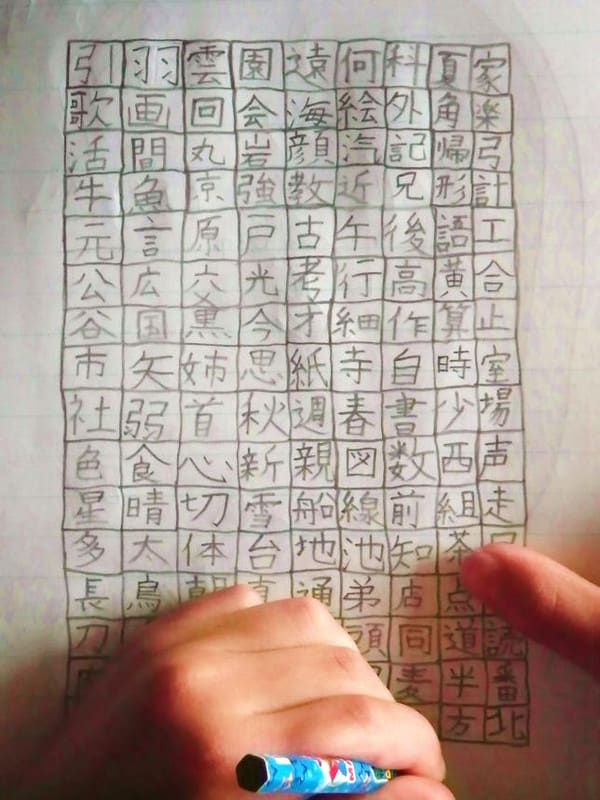 引羽雲園遠何科夏家
歌画回会海絵外角楽
活間丸岩顔汽記帰弓
牛魚京強教近兄形計
元言原戸古午後語工
公広交光考行高黄合
谷国黒今才細作算止
市矢姉思紙寺自時室
社弱首秋週春書少場
色食心新親図数西声
星晴切雪船線前組走
多太体台地池知茶
長鳥朝直通弟店点
刀頭同道読
麦半番
方北